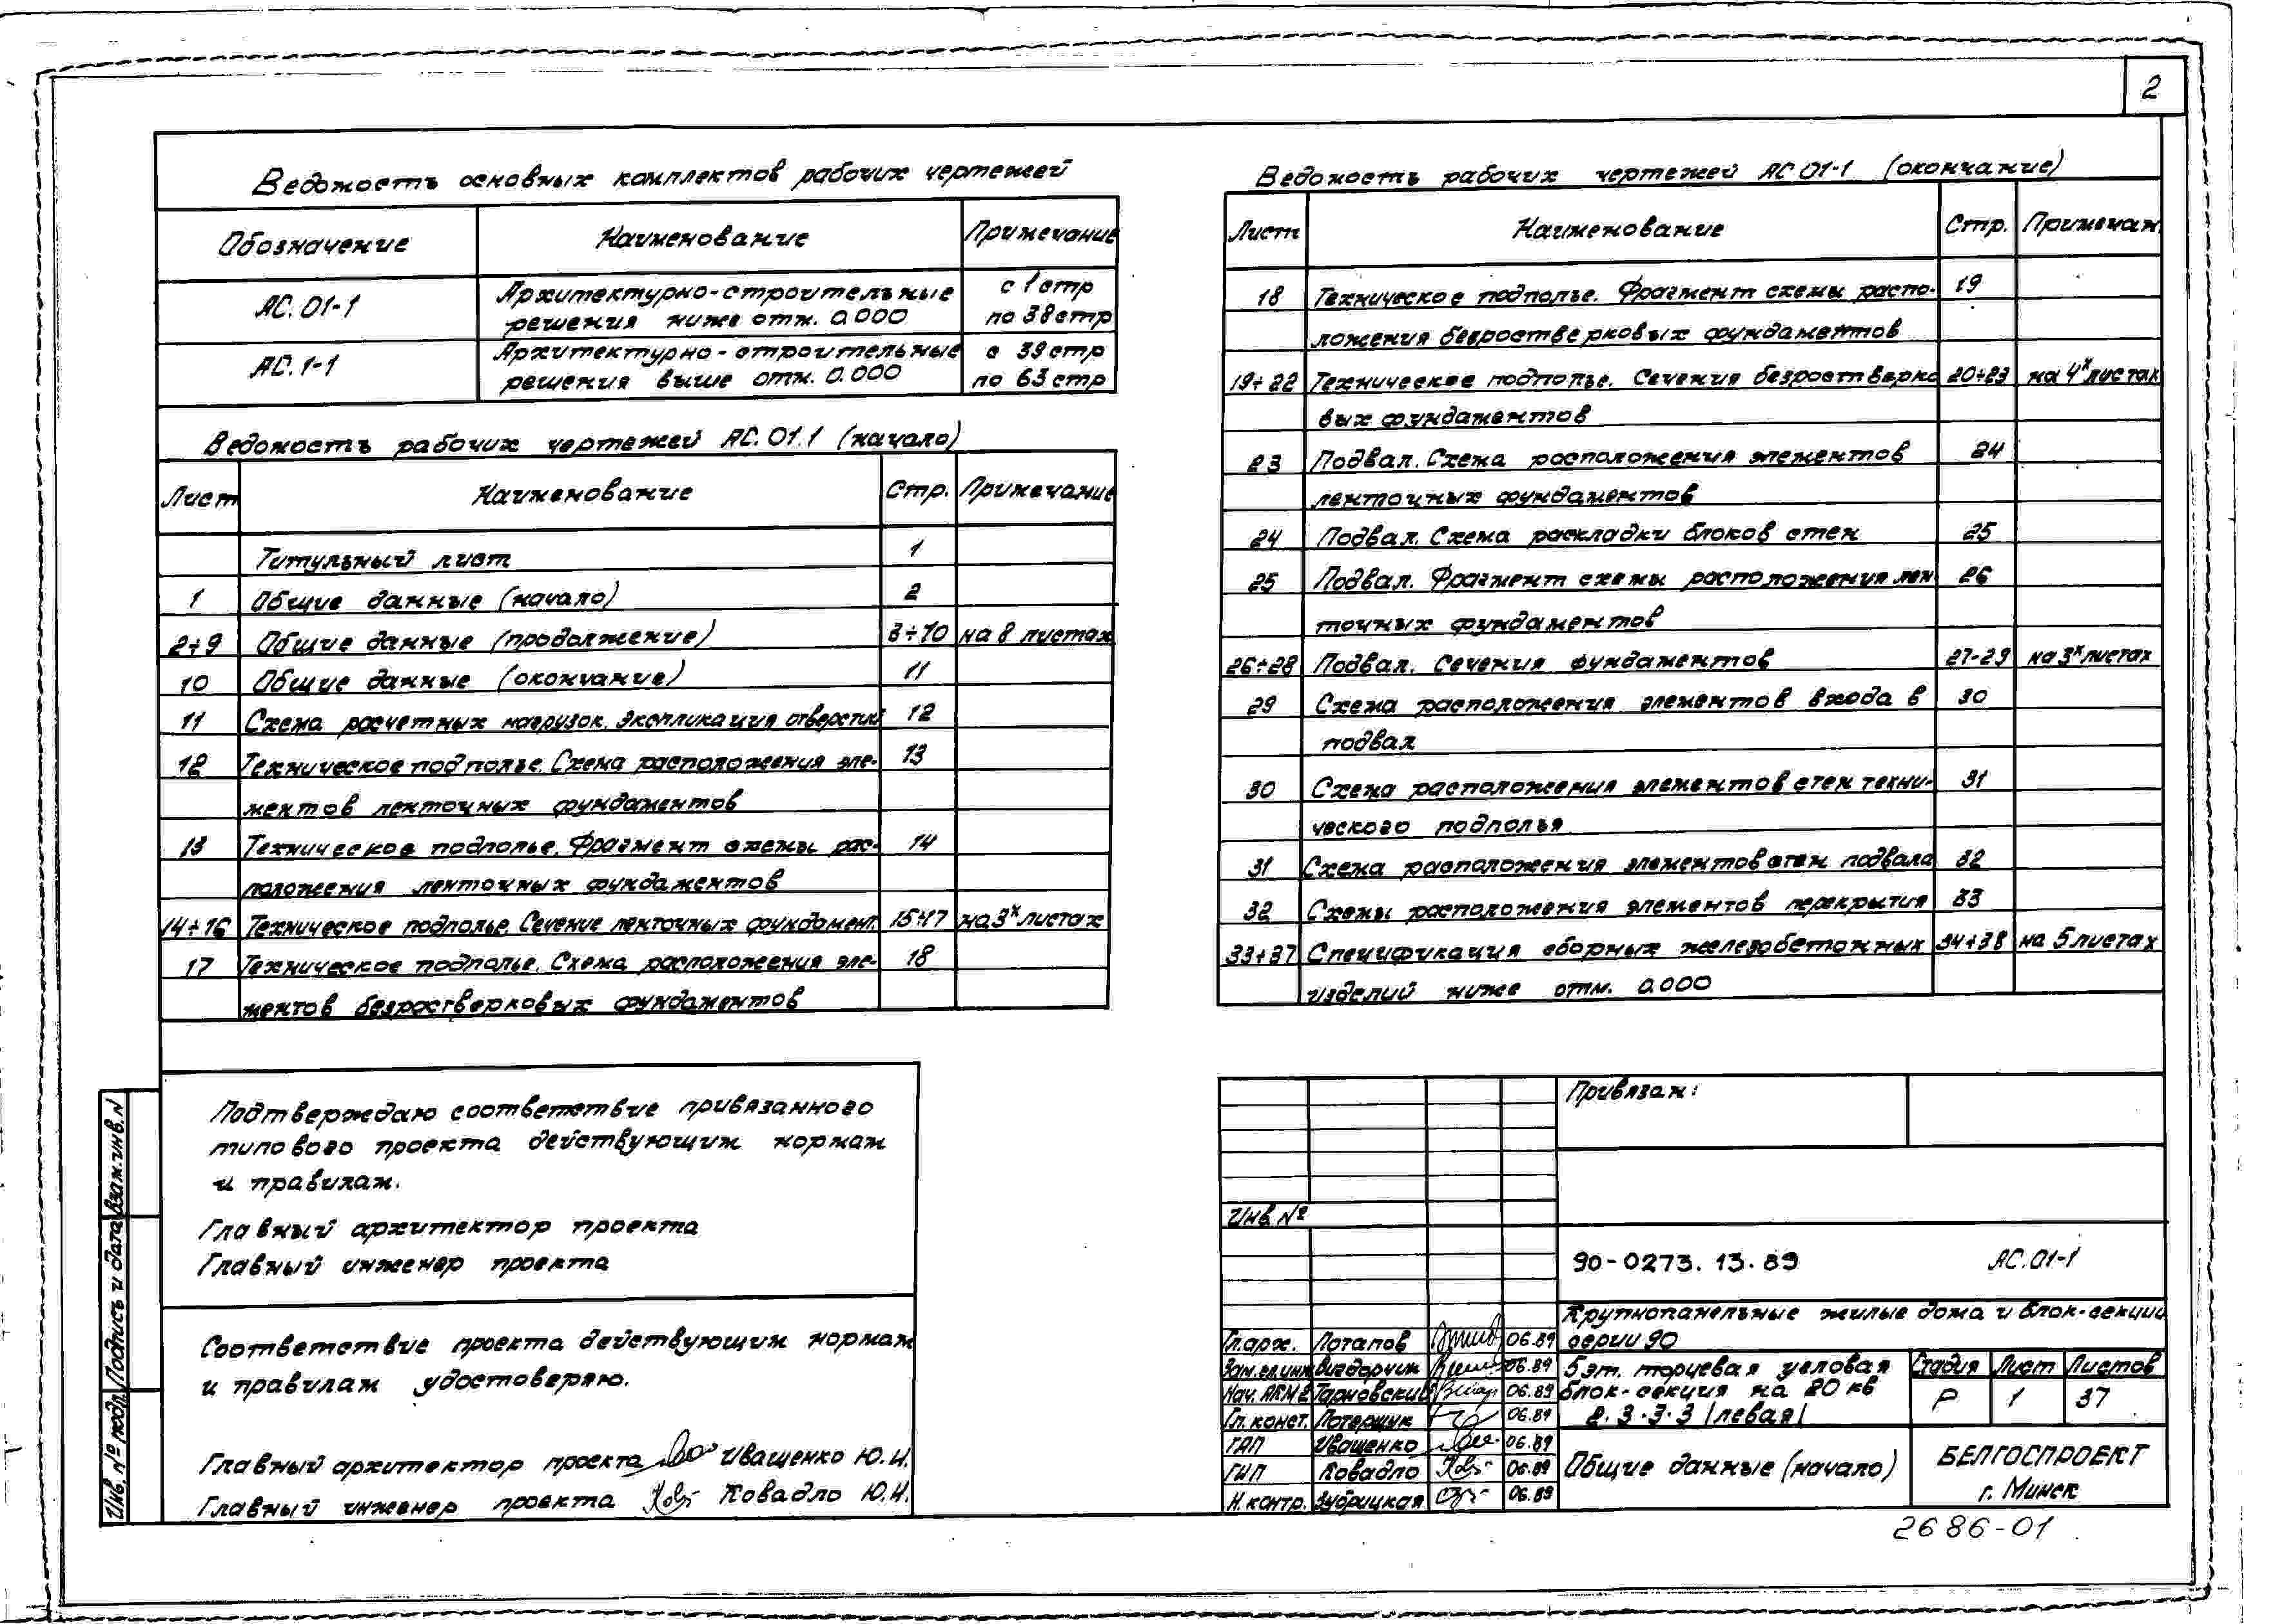 2
Ведомость основных комплектов рабочих чертежей
Обозначение Наименование Примечание
АС.01-1 Архитектурно-строительные с 1 стр
решения ниже отм. 0.000 по 38 стр
АС.1-1 Архитектурно-строительные с 39 стр
решения выше отм. 0.000 по 63 стр
Ведомость рабочих чертежей АС.01.1 (начало)
Лист Наименование Стр. Примечание
Титульный лист 1
1 Общие данные (начало) 2
2÷9 Общие данные (продолжение) 3÷10 на 8 листах
10 Общие данные (окончание) 11
11 Схема расчетных нагрузок. Экспликация отверстий 12
12 Техническое подполье. Схема расположения эле- 13
ментов ленточных фундаментов
13 Техническое подполье. Фрагмент схемы рас- 14
положения ленточных фундаментов
14÷16 Техническое подполье. Сечение ленточных фундамент. 15÷17 на 3х листах
17 Техническое подполье. Схема расположения эле- 18
ментов безростверковых фундаментов
Ведомость рабочих чертежей АС 01-1 (окончание)
Лист Наименование Стр. Примечан.
18 Техническое подполье. Фрагмент схемы распо- 19
ложения безростверковых фундаментов
19÷22 Техническое подполье. Сечения безростверко 20÷23 на 4х листах
вых фундаментов
23 Подвал. Схема расположения элементов 24
ленточных фундаментов
24 Подвал. Схема раскладки блоков стен 25
25 Подвал. Фрагмент схемы расположения лен- 26
точных фундаментов
26÷28 Подвал. Сечения фундаментов 27-29 на 3х листах
29 Схема расположения элементов входа в 30
подвал
30 Схема расположения элементов стен техни- 31
ческого подполья
31 Схема расположения элементов стен подвала 32
32 Схемы расположения элементов перекрытия 33
33÷37 Спецификация сборных железобетонных 34÷38 на 5 листах
изделий ниже отм. 0.000
Подтверждаю соответствие привязанного
типового проекта действующим нормам
и правилам.
Главный архитектор проекта
Главный инженер проекта
Соответствие проекта действующим нормам
и правилам удостоверяю.
Главный архитектор проекта Иващенко Ю.И.
Главный инженер проекта Ковадло Ю.И.
Взам.инв.N
Подпись и дата
Инв. № подл.
Привязан:
Инв.№
90-0273.13.89 АС.01-1
Крупнопанельные жилые дома и блок-секции
серии 90
Гл.арх. Потапов 06.89
Зам.гл.инж 06.89
Нач. АПМ 2 Тарновский 06.89
Гл. конст. Потерщук 06.89
ГАП Иващенко 06.89
ГИП Ковадло 06.89
Н.контр. Зубрицкая 06.89
5 эт. торцевая угловая
блок-секция на 20 кв
2.3.3.3 /левая/
Стадия Лист Листов
Р 1 37
Общие данные (начало)
БЕЛГОСПРОЕКТ
г. Минск
2686-01